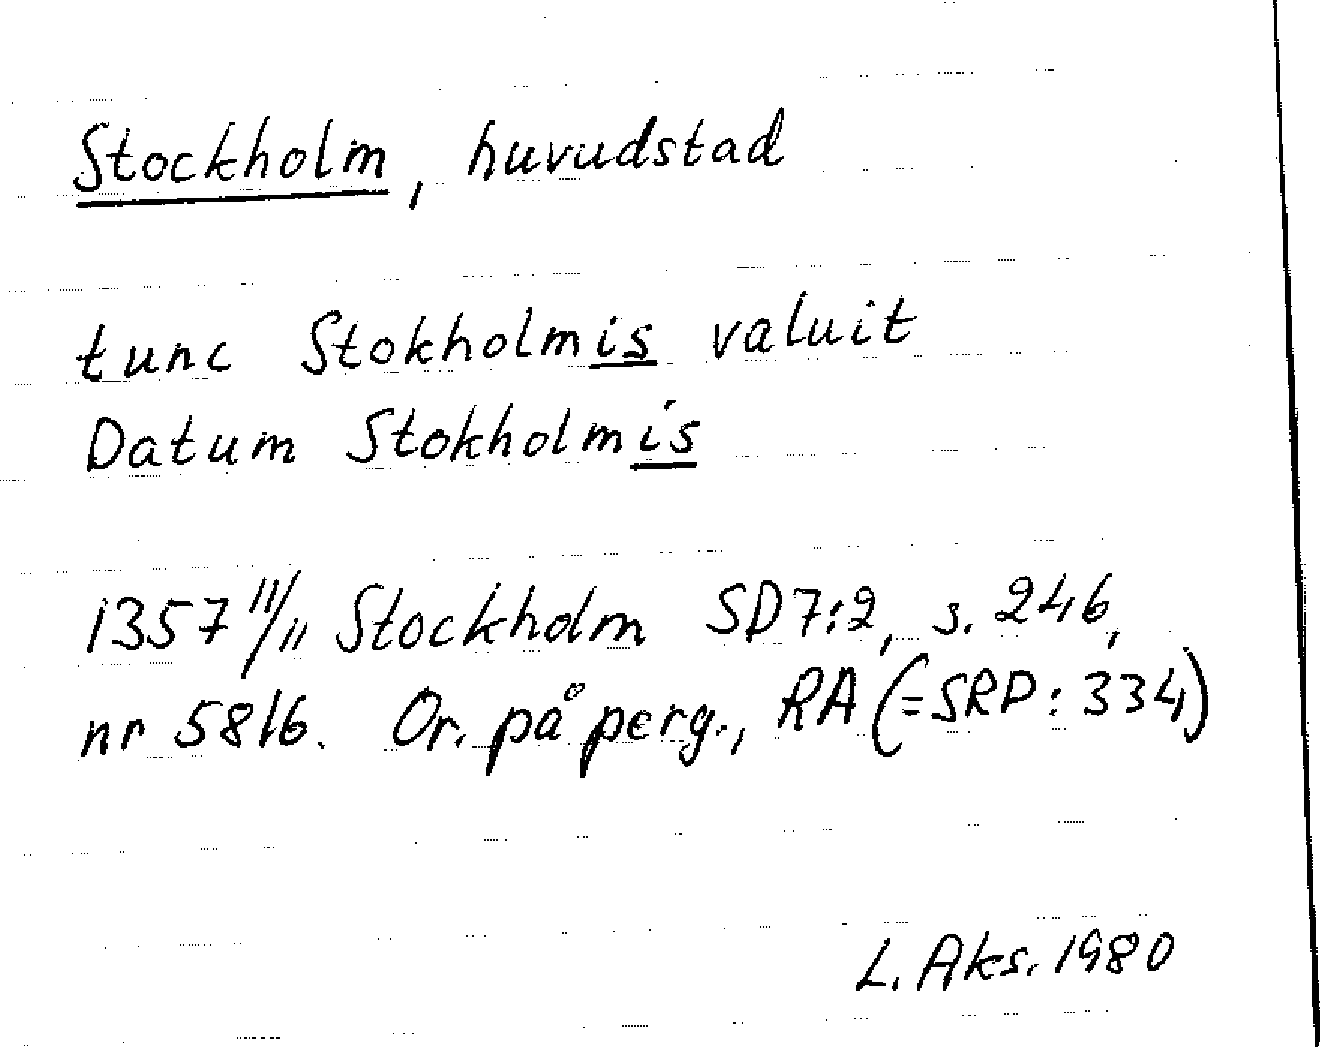 Stockholm, huvudstad
tunc Stokholmis valuit
Datum Stokholmis
1357 11/11 Stockholm SD7:2, s. 246,
nr 5816. Or. på perg., RA (=SRP: 334)
L. Aks. 1980